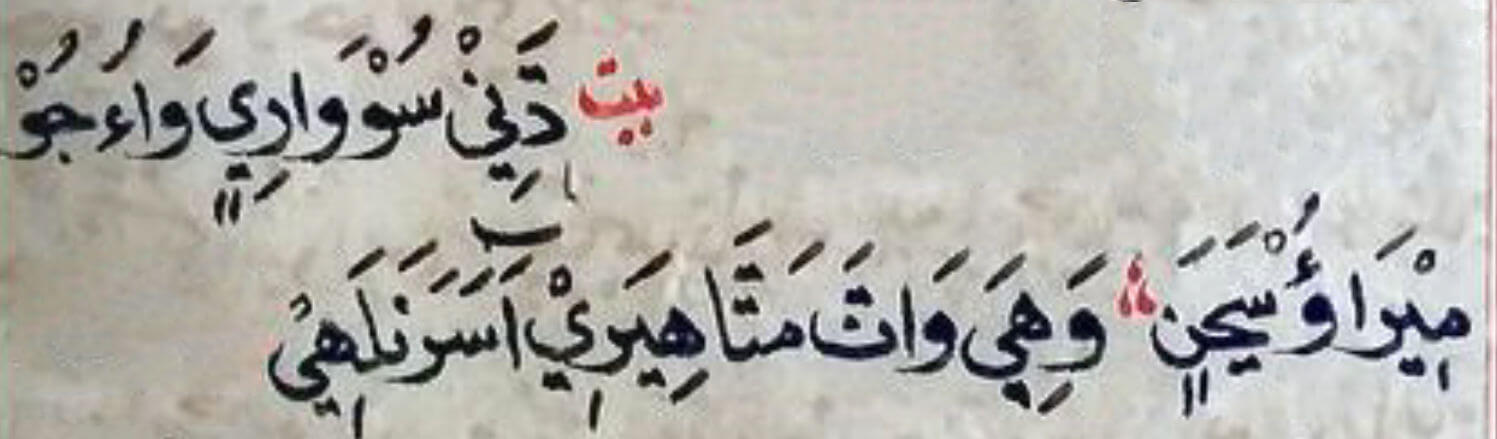 بيت دَّنِيْ سُوْوَارِيٍ وَاءُ جُوْ
مِيْرَا وُسْيَجَنٍ ؞ وَهِيَ وَاتَ مَتَّاهِيَرِيْ اَسَرَنَلَهِيْ